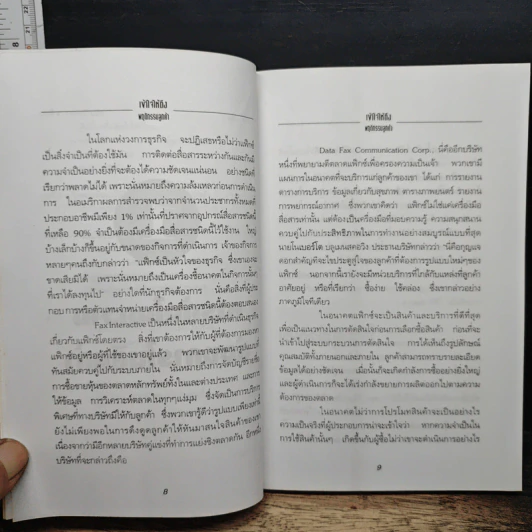 เข้าใจให้ถึง
พฤติกรรมลูกค้า
ในโลกแห่งวงการธุรกิจ จะปฏิเสธหรือไม่ว่าแฟ็กซ์
เป็นสิ่งจำเป็นที่ต้องใช้มัน การติดต่อสื่อสารระหว่างกันและกันมี
ความจำเป็นอย่างยิ่งที่จะต้องได้ความชัดเจนแน่นอน อย่างชนิดที่
เรียกว่าพลาดไม่ได้ เพราะนั่นหมายถึงความล้มเหลวก่อนการดำเนิน
การ ในอเมริกาผลการสำรวจพบว่าจากจำนวนประชากรทั้งหมดที่
ประกอบอาชีพมีเพียง 1% เท่านั้นที่ปราศจากอุปกรณ์สื่อสารชนิดนี้
ที่เหลือ 90% จำเป็นต้องมีเครื่องมือสื่อสารชนิดนี้ไว้ใช้งาน ใหญ่
บ้างเล็กบ้างก็ขึ้นอยู่กับขนาดของกิจการที่ดำเนินการ เจ้าของกิจการ
หลายๆคนถึงกับกล่าวว่า "แฟ็กซ์เป็นหัวใจของธุรกิจ ซึ่งเราขอจะ
ขาดเสียมิได้ เพราะนั่นหมายถึงเป็นเครื่องชี้อนาคตในกิจการนั้นๆ
ที่เราได้ลงทุนไป" อย่างใดที่นักธุรกิจต้องการ นั่นคือสิ่งที่ผู้ประ
กอบการหรือตัวแทนจำหน่ายเครื่องมือสื่อสารชนิดนี้ต้องตอบสนอง
Fax Interactive เป็นหนึ่งในหลายบริษัทที่ดำเนินธุรกิจ
เกี่ยวกับแฟ็กซ์โดยตรง สิ่งที่เขาต้องการให้กับผู้ที่ต้องการมองหา
แฟ็กซ์อยู่หรือผู้ที่ใช้ของเขาอยู่แล้ว พวกเขาจะพัฒนารูปแบบที่
ทันสมัยควบคู่ไปกับระบบภายใน นั่นหมายถึงการจัดบัญชีรายชื่อ
การซื้อขายหุ้นของตลาดหลักทรัพย์ทั้งในและต่างประเทศ และการ
ให้ข้อมูล การวิเคราะห์ตลาดในทุกๆแง่มุม ซึ่งจัดเป็นการบริการ
พิเศษที่ทางบริษัทมีให้กับลูกค้า ซึ่งพวกเขารู้ดีว่ารูปแบบเพียงเท่านี้
ยังไม่เพียงพอในการดึงดูดลูกค้าให้หันมาสนใจสินค้าของเขา
เนื่องจากว่ามีอีกหลายบริษัทคู่แข่งที่ทำการแย่งชิงตลาดกัน อีกหนึ่ง
บริษัทที่จะกล่าวถึงคือ
8
เข้าใจให้ถึง
พฤติกรรมลูกค้า
Data Fax Communication Corp., นี่คืออีกบริษัท
หนึ่งที่พยายามตีตลาดแฟ็กซ์เพื่อครองความเป็นเจ้า พวกเขามี
แผนการในอนาคตที่จะบริการแก่ลูกค้าของเขา ได้แก่ การรายงาน
ตารางการบริการ ข้อมูลเกี่ยวกับสุขภาพ ตารางภาพยนตร์ รายงาน
การพยากรณ์อากาศ ซึ่งพวกเขาคิดว่า แฟ็กซ์ไม่ใช่แค่เครื่องมือ
สื่อสารเท่านั้น แต่ต้องเป็นเครื่องมือที่มอบความรู้ ความสนุกสนาน
ควบคู่ไปกับประสิทธิภาพในการทำงานอย่างสมบูรณ์แบบที่สุด
ประธานบริษัทกล่าวว่า "นี่คือกุญแจ
ดอกสำคัญที่จะไขประตูสู่ใจของลูกค้าที่ต้องการรูปแบบใหม่ๆของ
แฟ็กซ์ นอกจากนี้เรายังจะมีหน่วยบริการที่ใกล้กับแหล่งที่ลูกค้า
อาศัยอยู่ หรือที่เรียกว่า ซื้อง่าย ใช้คล่อง ซึ่งเขากล่าวอย่าง
ภาคภูมิใจทีเดียว
ในอนาคตแฟ็กซ์จะเป็นสินค้าและบริการที่ดีที่สุด
เพื่อเป็นแนวทางในการตัดสินใจก่อนการเลือกซื้อสินค้า ก่อนที่จะ
นำเข้าไปสู่ระบบกระบวนการตัดสินใจ การได้เห็นถึงรูปลักษณ์
คุณสมบัติทั้งภายนอกและภายใน ลูกค้าสามารถทราบรายละเอียด
ข้อมูลได้อย่างชัดเจน เมื่อนั้นก็จะเกิดกำลังการซื้ออย่างยิ่งใหญ่
และผู้ดำเนินการก็จะได้เร่งกำลังขยายการผลิตออกไปตามความ
ต้องการของตลาด
ในอนาคตไม่ว่าการโปรโมทสินค้าจะเป็นอย่างไร
ความเป็นจริงที่ผู้ประกอบการน่าจะเข้าใจว่า หากความจำเป็นใน
การใช้สินค้านั้นๆ เกิดขึ้นกับผู้ซื้อไม่ว่าเขาจะดำเนินการอย่างไร
9